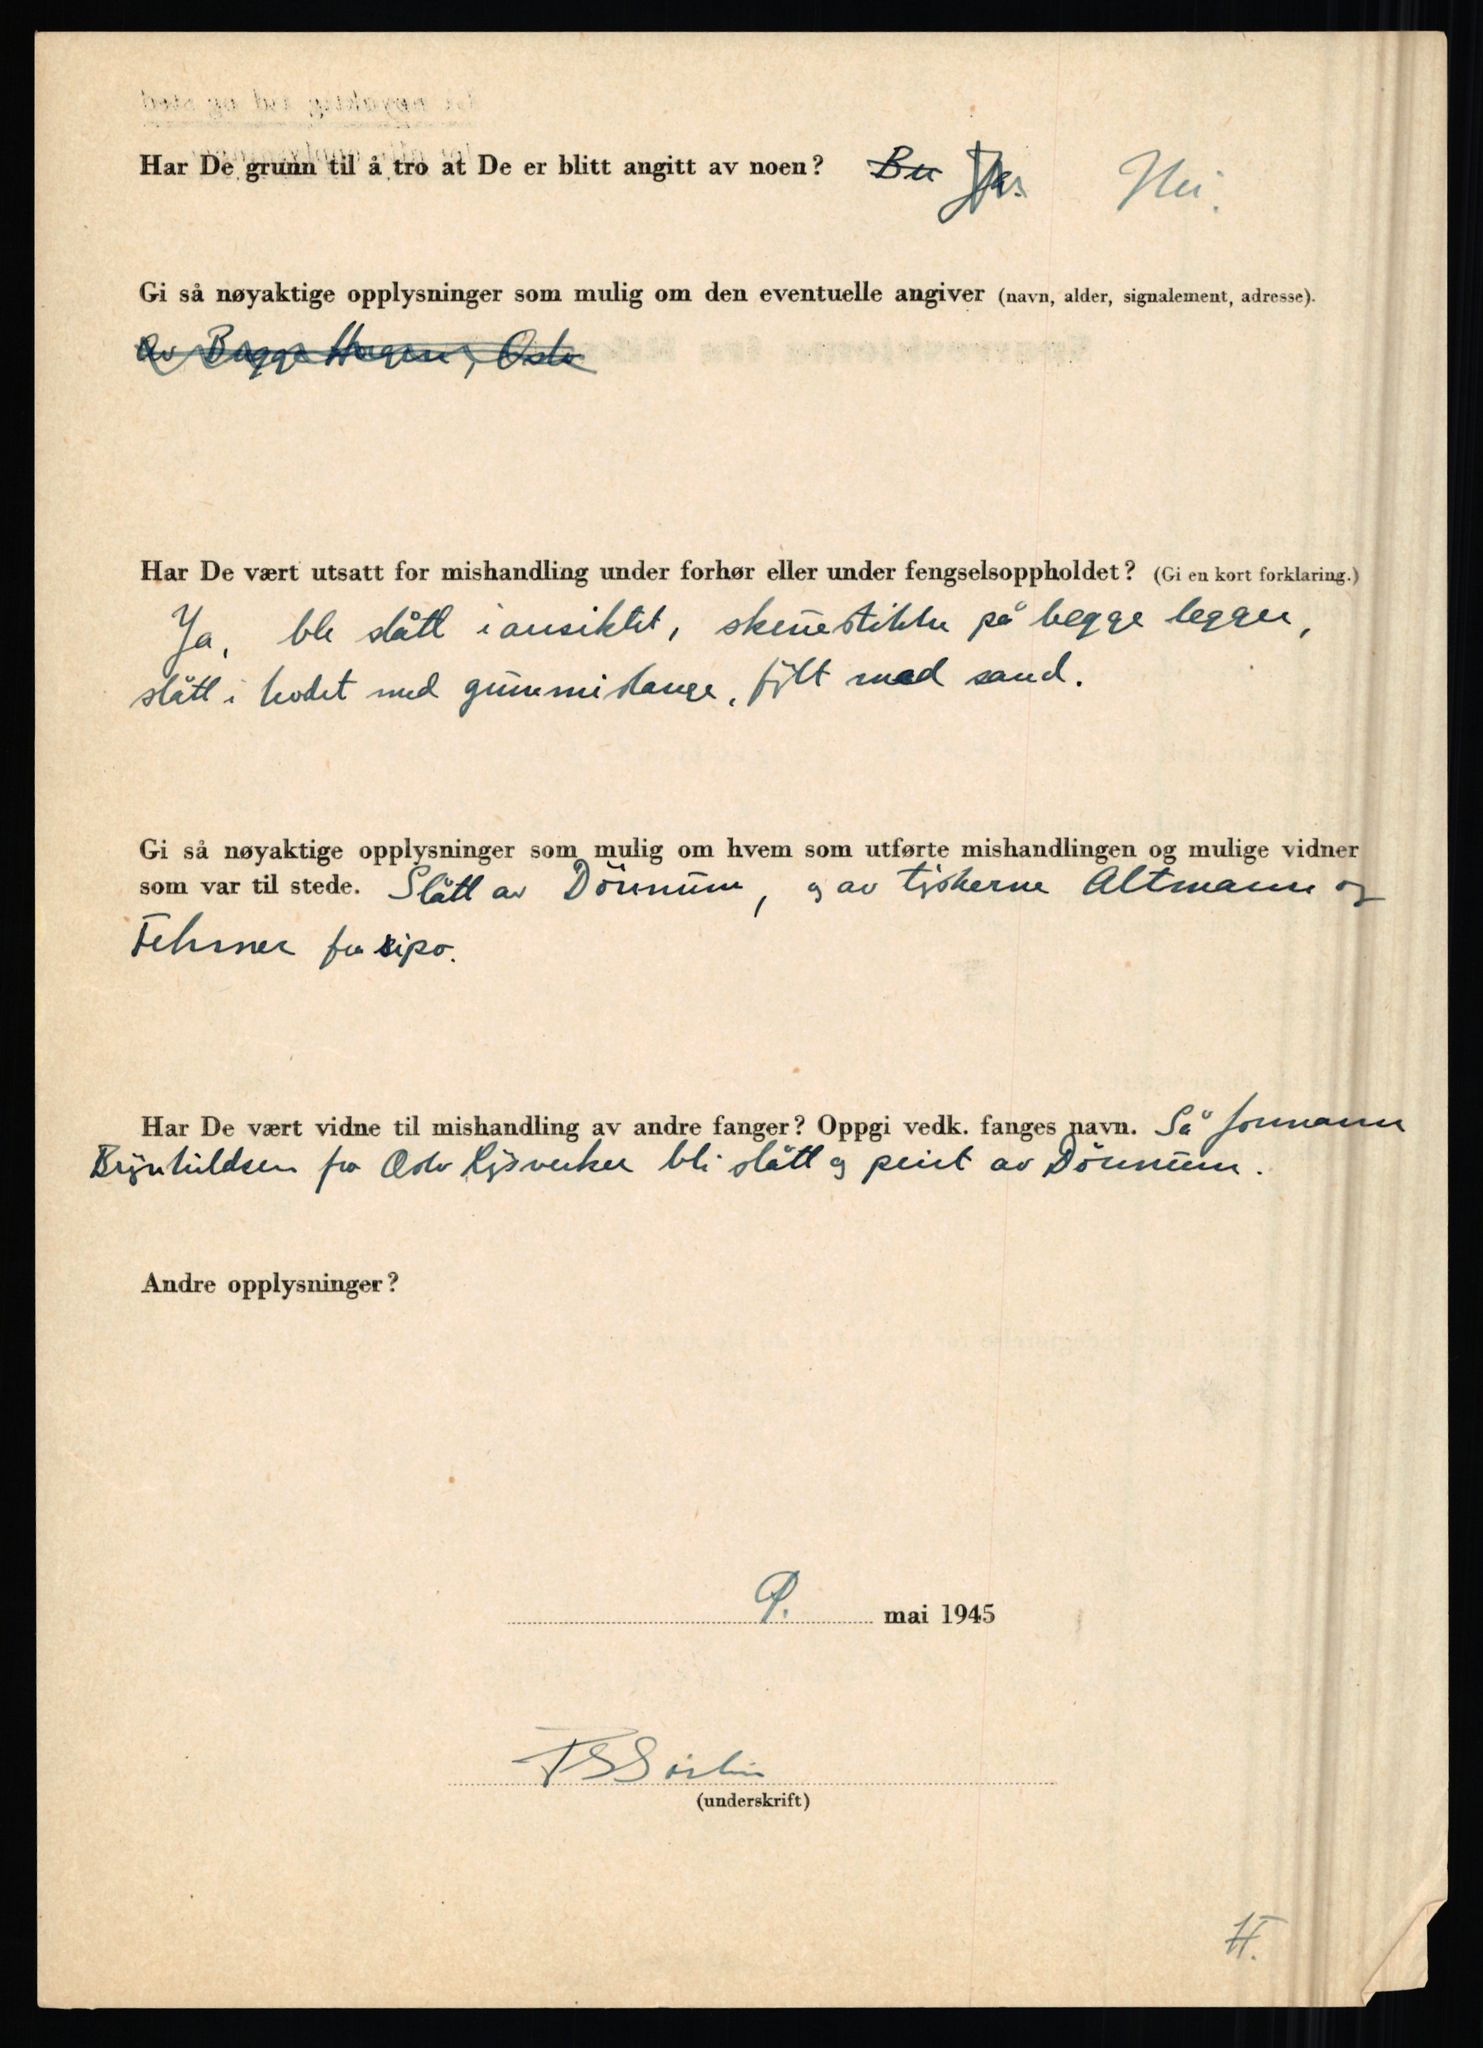 Har De grunn til å tro at De er blitt angitt av noen? Nei.
Gi så nøyaktige opplysninger som mulig om den eventuelle angiver (navn, alder, signalement, adresse).
av Bagge Haugen, Oslo
Har De vært utsatt for mishandling under forhør eller under fengselsoppholdet? (Gi en kort forklaring.)
Ja, ble slått i ansiktet, skinnestikker på begge legger,
slått i hodet med gummislange, fylt med sand.
Gi så nøyaktige opplysninger som mulig om hvem som utførte mishandlingen og mulige vidner
som var til stede. Slått av Dönnum, og av tyskerne Altmann og
Fehmer fra sipo.
Har De vært vidne til mishandling av andre fanger? Oppgi vedk. fanges navn. Så formann
Brynhildsen fra Oslo Lysverker bli slått og peint av Dönnum.
Andre opplysninger?
9. mai 1945
(underskrift)
H.